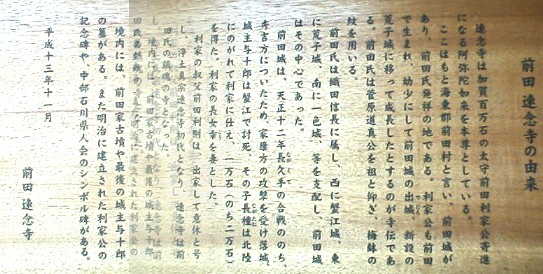 前田 速念寺の由来
速念寺は加賀百万石の太守前田利家公寄進
になる阿弥陀如来を本尊としている。
ここはもと海東郡前田村と言い、前田城が
あり、前田氏発祥の地である。利家公も前田
で生まれ、幼少にして前田城の出城、新設の
荒子城に移って成長したとするのが寺伝であ
る。前田氏は菅原道真公を祖と仰ぎ、梅鉢の
紋を用いる。
前田氏は織田信長に属し、西に蟹江城、東
に荒子城、南に一色城、等を支配し、前田城
はその中心であった。
前田城は、天正十二年長久手の合戦ののち、
秀吉方についたため、家康方の攻撃を受け落城。
城主与十郎は蟹江で討死、その子長種は北陸
にのがれて利家に仕え、一万石（のち二万石）
を得た。利家の長女幸を妻とした。
利家の叔父前田利則は、出家して意休と号
し、浄土真宗速念寺初代となり、速念寺は前
田氏の鎮魂の寺となった。
境内には、前田家古墳や最後の城主与十郎
の墓がある。また明治に建立された利家公の
記念碑や、中部石川県人会のシンボル碑がある。
平成十三年十一月
前田 速念寺